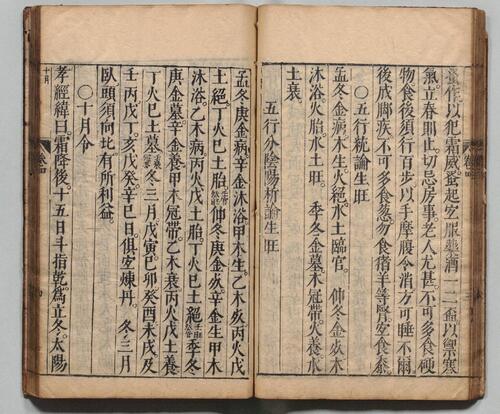 晝作以犯霜威蚤起宜服藥酒一二盃以禦寒
氣立春則止切忌房事老人尤甚不可多食硬
物食後須行百步以手摩腹令消方可睡不爾
後成脚疾不可多食葱勿食猪羊等腎宜食黍
○五行統論生旺
孟冬金病木生火絕水土臨官 仲冬金死木
沐浴火胎水土旺 季冬金墓木冠帶火養水
土衰
五行分陰陽析論生旺
孟冬庚金病辛金沐浴甲木生乙木死丙火戊
土絕丁火巳土胎 仲冬庚金死辛金生甲木
沐浴乙木病丙火戊土胎丁火巳土絕 季冬
庚金墓辛金養甲木冠帶乙木衰丙火戊土養
丁火巳土墓 冬三月戊寅巳卯癸酉未戌及
壬丙戊丁亥戊癸辛巳日俱宜煉丹 冬三月
臥頭須向北有所利益
○十月令
孝經緯曰霜降後十五日斗指乾爲立冬太陽
十月
卷四